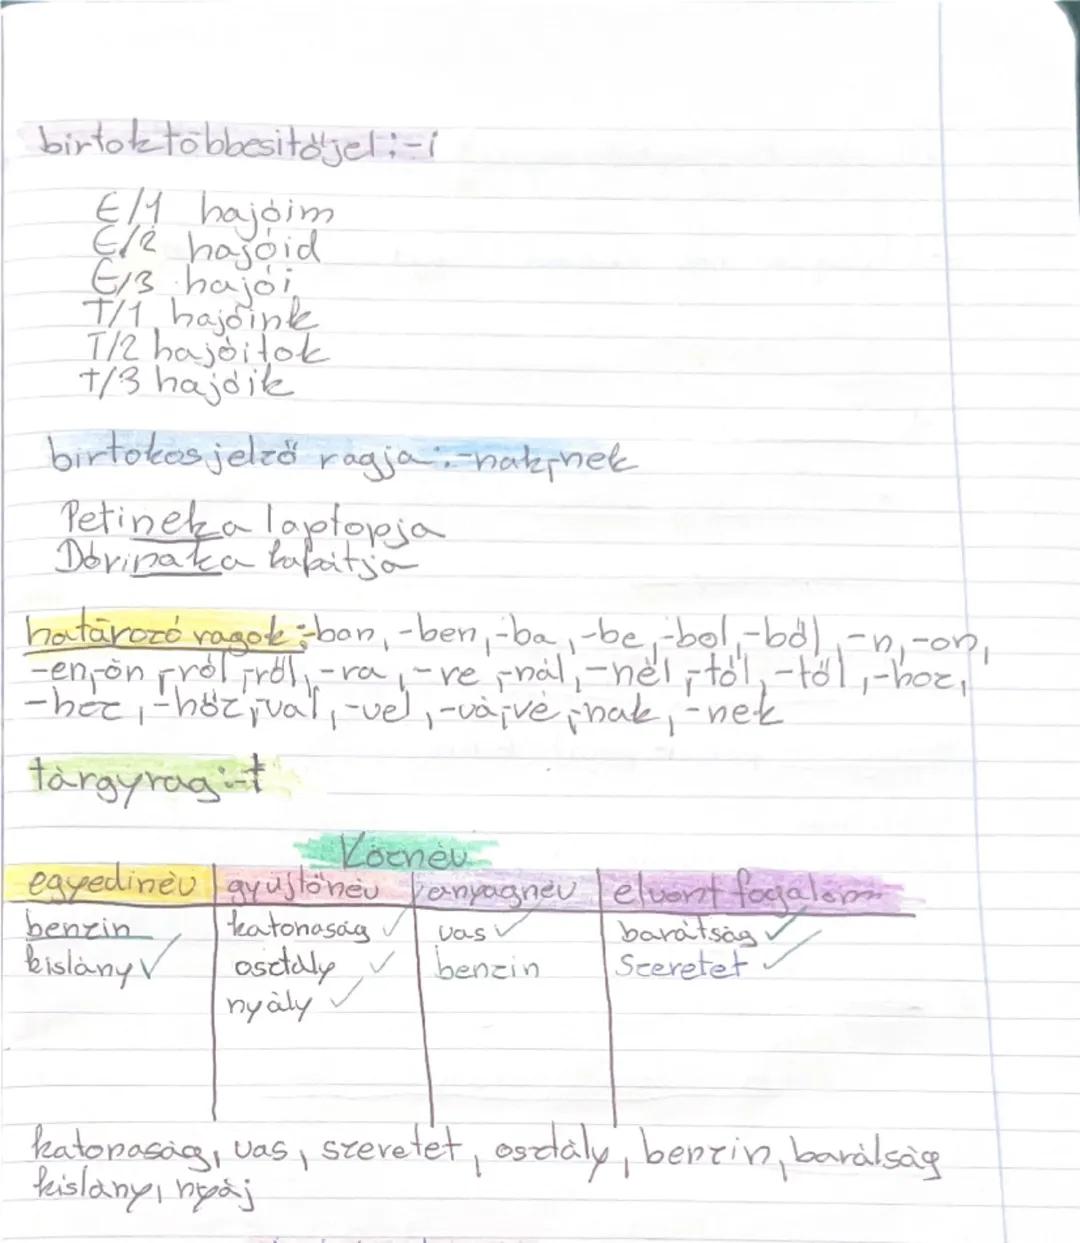 birtoktöbbesitőjel:-i
E/1 hajóim
E/2 hajóid
E/3 hajói
T/1 hajóink
T/2 hajóitok
T/3 hajóik
birtokos jelző ragja:-nak,-nek
Petinek a laptopja
Dórinak a kabátja
határozó ragok:-ban,-ben,-ba,-be,-bol,-ból,-n,-on,
-en,-ön,-ról,-ről,-ra,-re,-nál,-nél,-tól,-től,-hoz,
-hez,-höz,-val,-vel,-vá,-vé,-nak,-nek
tárgyrag:-t
Köznév
egyedinév gyűjtőnév anyagnév elvont fogalom
benzin katonaság vas barátság
kislány osztály benzin Szeretet
nyály
katonaság, vas, szeretet, osztály, benzin, barátság
kislány, nyáj